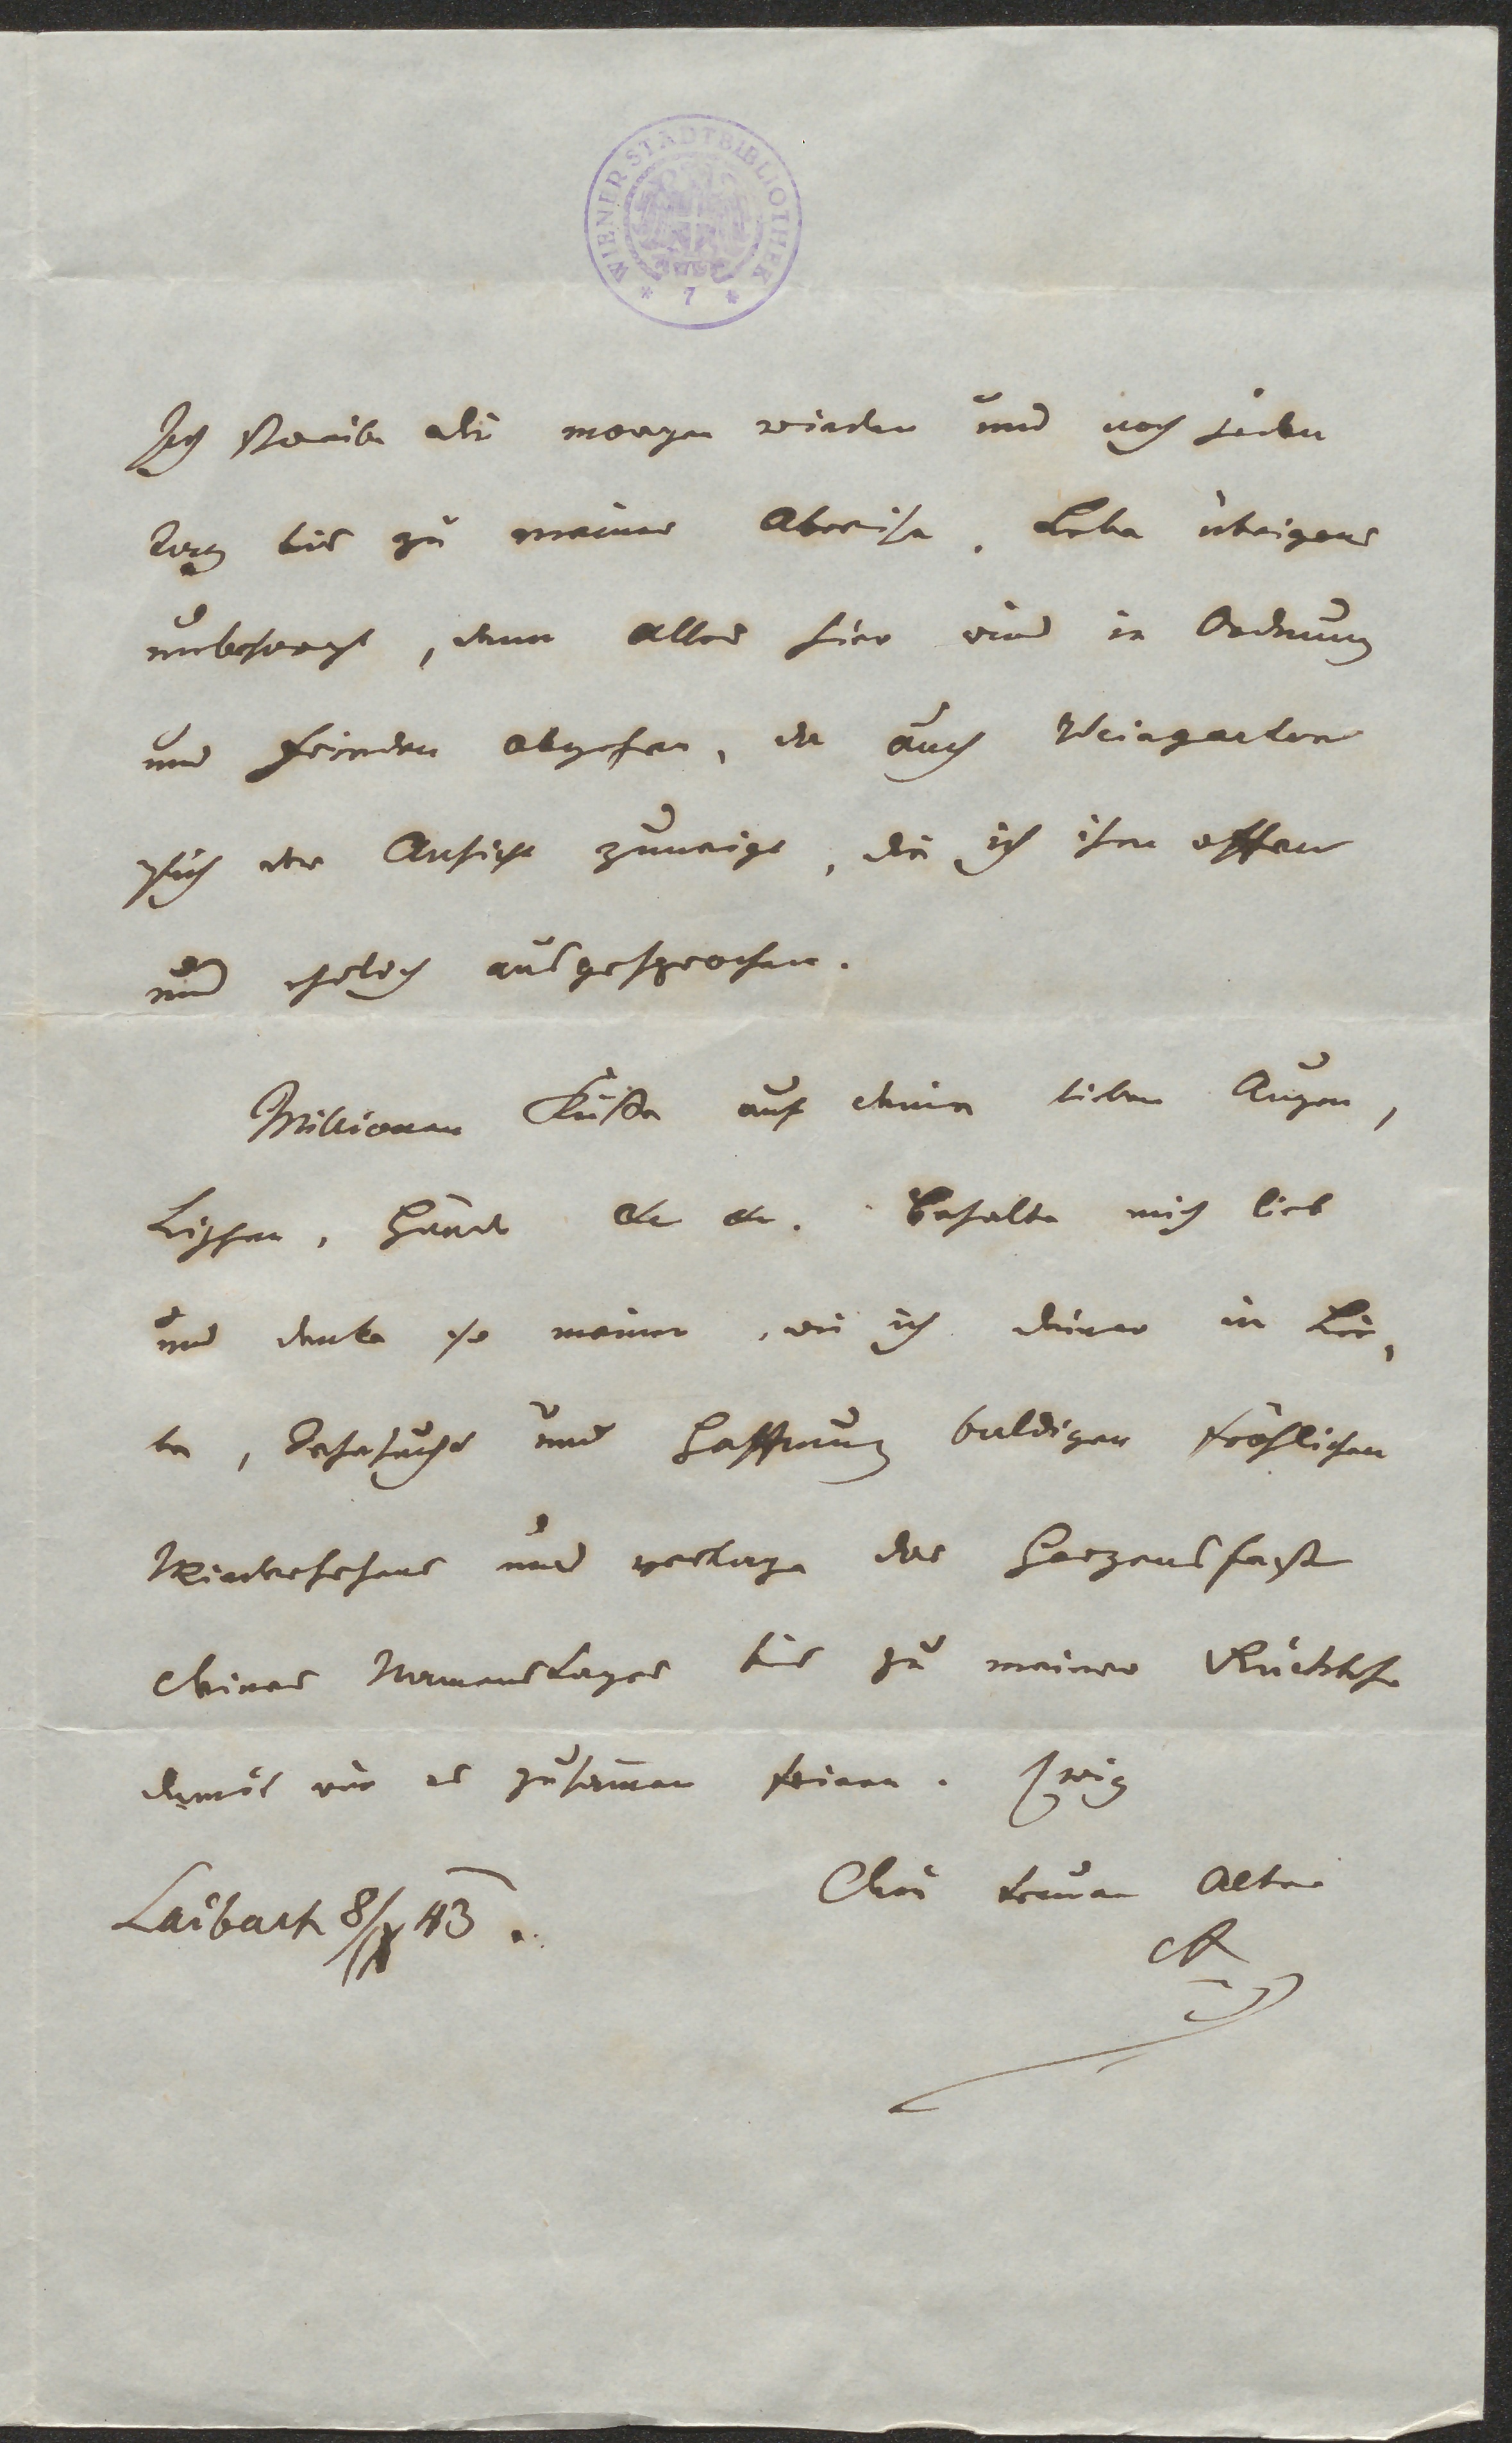 WIENER STADTBIBLIOTHEK
* 7 *
Ich schreibe dir morgen wieder und noch jeden
Tag bis zu meiner Abreise. Lebe übrigens
unbesorgt, denn alles hier wird in Ordnung
und Frieden abgehen, da auch Weingarten
sich der Ansicht zuneigt, die ich ihm offen
und ehrlich ausgesprochen.
Millionen Küße auf deine lieben Augen,
Lippen, Hände &c &c. Behalte mich lieb
und denke so meiner, wie ich deiner in Lie,
be, Sehnsucht und Hoffnung baldigen fröhlichen
Wiedersehens und verlege das Herzensfest
deines Namenstages bis zu meiner Rückkehr
damit wir es zusam̅en feiern. Ewig
Dein treuer Alter
Laibach 8/IX 43.
A